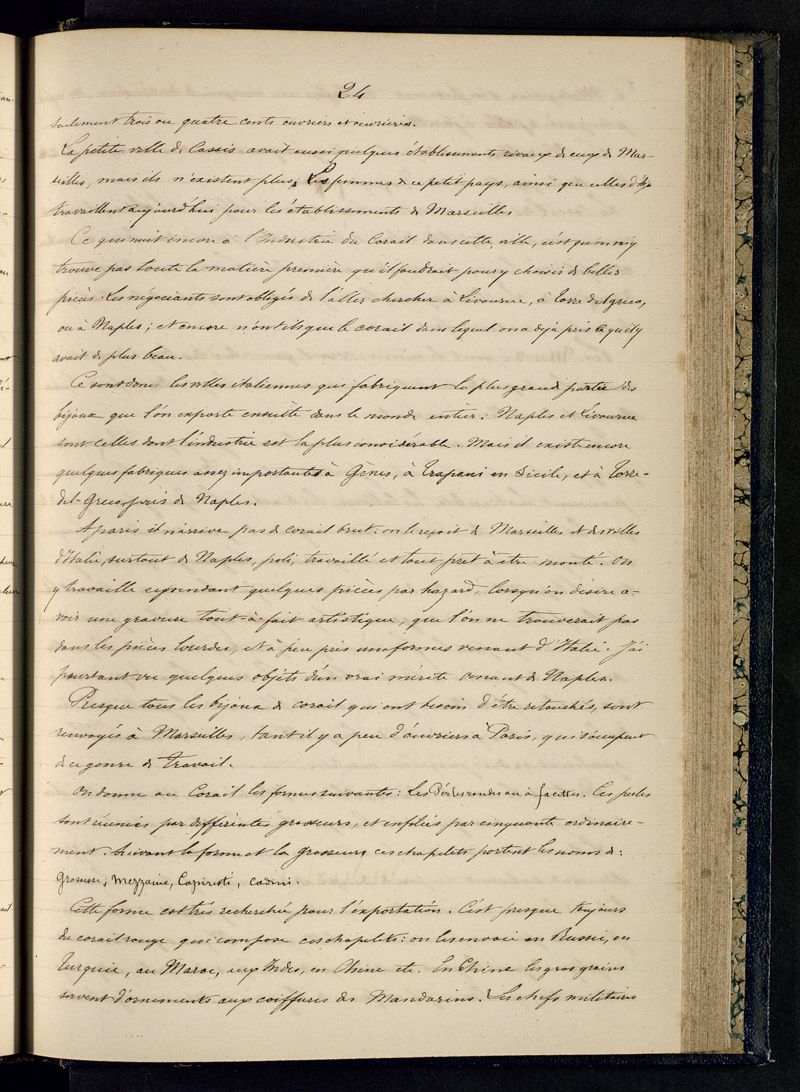 24
seulement trois ou quatre cents ouvriers et ouvrières.
La petite ville de Cassis avait aussi quelques établissements rivaux de ceux de Mar-
seilles, mais ils n'existent plus. Les femmes de ce petit pays, ainsi que celles d'
travaillent aujourd'hui pour les établissements de Marseilles
Ce qui nuit encore à l'Industrie du Corail dans cette ville, c'est qu'on n'y
trouve pas toute la matière première qu'il faudrait pour y choisir de belles
pièces. Les négociants sont obligés de l'aller chercher à Livourne, à Torre del greco,
ou à Naples; et encore n'ont ils que le corail dans lequel on a déjà pris ce qu'il y
avait de plus beau.
Ce sont donc les villes italiennes qui fabriquent la plus grande partie des
bijoux que l'on exporte ensuite dans le monde entier: Naples et Livourne
sont celles dont l'industrie est la plus considérable. Mais il existe encore
quelques fabriques assez importantes à Gênes, à Trapani en Sicile, et à Torre-
del-Greco près de Naples.
A paris il n'arrive pas de corail brut: on le reçoit de Marseilles et des villes
d'Italie, surtout de Naples, poli, travaillé et tout prêt à être monté. On
y travaille cependant quelques pièces par hazard, lorsqu'on désire a-
voir une gravure tout-à-fait artistique, que l'on ne trouverait pas
dans les pièces lourdes, et à peu près uniformes venant d'Italie. J'ai
pourtant vu quelques objets d'un vrai mérite venant de Naples.
Presque tous les bijoux de corail qui ont besoin d'être retouchés, sont
renvoyés à Marseilles, tant il y a peu d'ouvriers à Paris, qui s'occupent
de ce genre de travail.
On donne au Corail les formes suivantes: Les Perles rondes ou à facettes. Ces perles
sont réunies par différentes grosseurs, et enfilées par cinquante ordinaire-
ment. Suivant la forme et la grosseur, ces chapelets portent les noms de:
Grossesse, Mezzanie, Capiresti, Cadini.
Cette forme est très recherchée pour l'exportation. C'est presque toujours
du corail rouge qui compose ces chapelets: on les envoie en Russie, en
Turquie, au Maroc, aux Indes, en Chine etc. En Chine les gros grains
servent d'ornements aux coiffures des Mandarins. Les chefs militaires